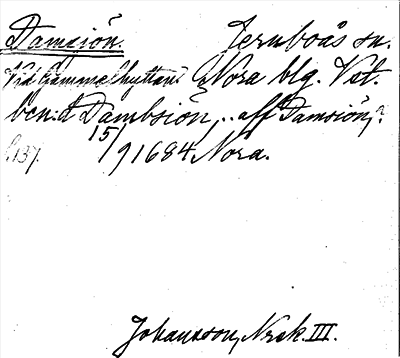 Damsjön. Jernboås sn.
Vid Gammelhyttan. Nora blg. Vst.
ben:d Dambsiön, .. aff Damsiön,
15/9 1684 Nora.
Johansson, Nrsk. III.